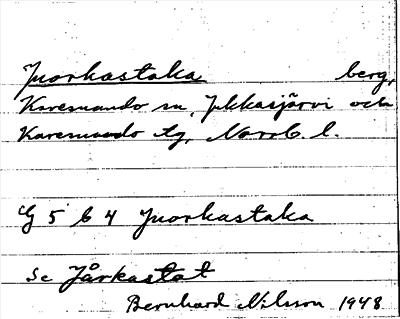 Juorkastaka berg,
Karesuando sn, Jukkasjärvi och
Karesuando tg, Norrb. l.
G 5 b 4 Juorkastaka
Se Jårkastat
Bernhard Nilsson 1948